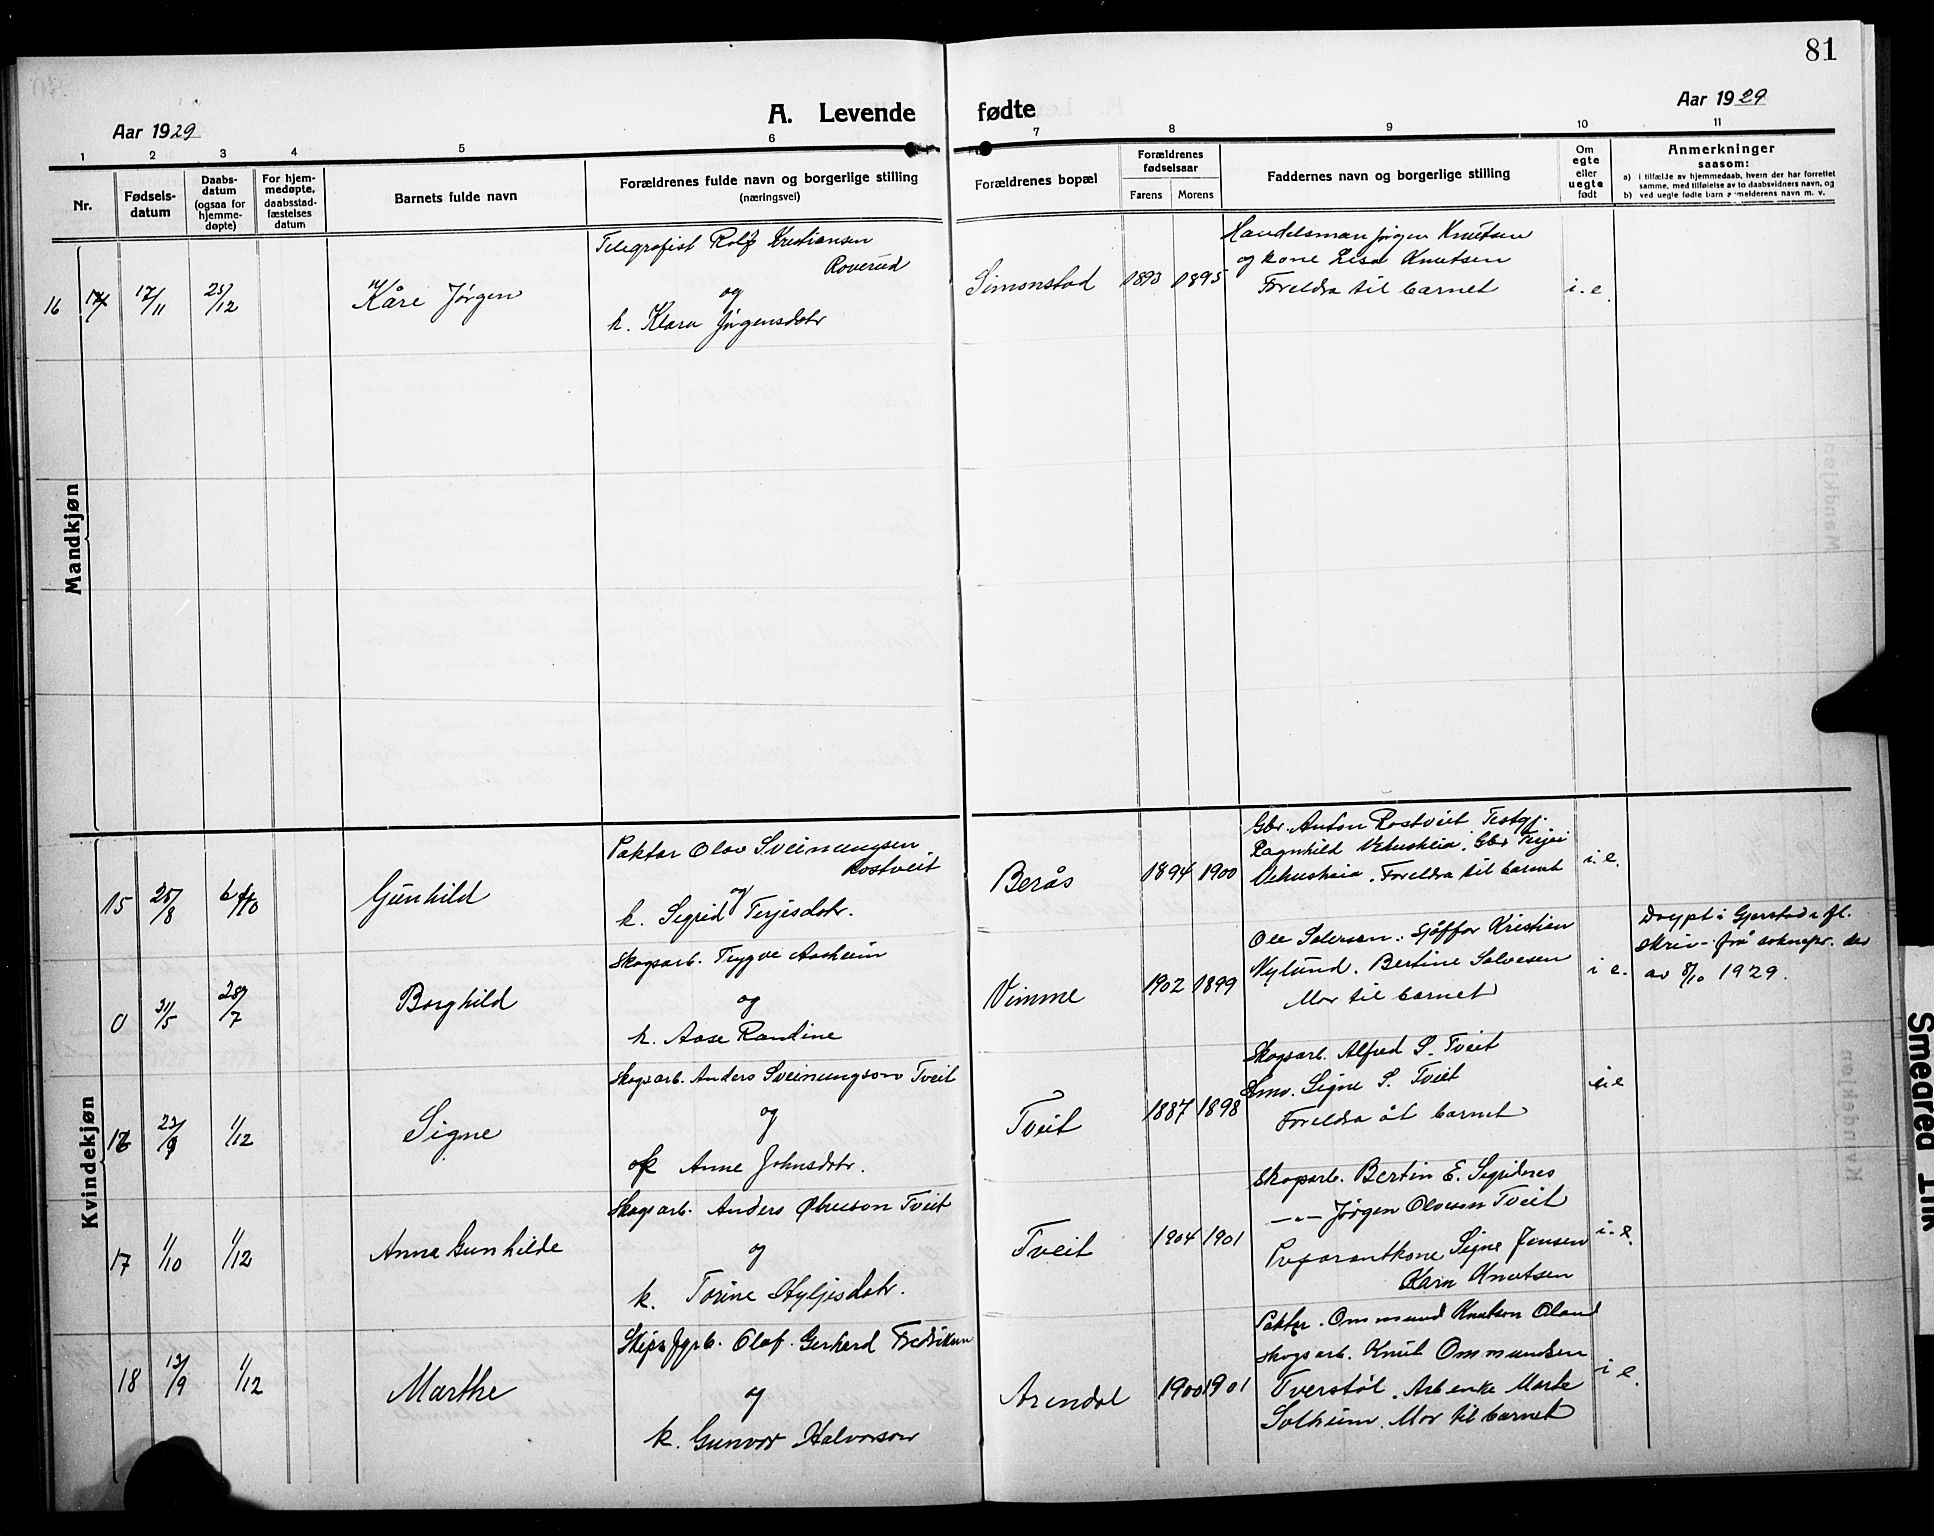 81
Aar 1929
A. Levende fødte
Aar 1929
1 2 3 4 5 6 7 8 9 10 11
Nr.
Fødsels-
datum
Daabs-
datum
(ogsaa for
hjemme-
døpte)
For hjem-
medøpte,
daabsstad-
fæstelses
datum
Barnets fulde navn
Forældrenes fulde navn og borgerlige stilling
(næringsvei)
Forældrenes bopæl
Forældrenes
fødselsaar
Farens Morens
Faddernes navn og borgerlige stilling
Om
egte
eller
uegte
født
Anmerkninger
saasom:
a) i tilfælde av hjemmedaab, hvem der har forrettet
samme, med tilføielse av to daabsvidners navn, og
b) ved uegte fødte barn anmelderens navn m. v.
Mandkjøn
16 17/11 25/12
Kåre Jørgen
Telegrafist Rolf Kristiansen
Roverud
og
k. Klara Jørgensdotr
Simonstad
1893 1895
Handelsman Jørgen Knutsen
og kone Lisa Knutsen
Foreldra til barnet
i. e.
Kvindekjøn
15 25/8 6/10
Gunhild
Paktar Olav Sveinungsen
Rostveit
og
k. Sigrid Terjesdotr.
Berås
1894 1900
Gbr. Anton Rostveit
Ragnhild Vehusheia. Gbr Terjei
Vehusheia. Foreldra til barnet
i. e.
0 31/5 28/7
Borghild
Skogsarb. Trygve Aasheim
og
k. Aase Randine
Vimme
1902 1899
Ole Salvesen. sjåffør Kristian
Nylund. Bertine Salvesen
Mor til barnet
i e.
Døypt i Gjerstad e fl.
skriv- frå soknepr. der
av 8/10 1929.
16 23/9 1/12
Signe
Skogsarb. Anders Sveinungson Tveit
og
k Anne Johnsdotr.
Tveit
1887 1898
Skogsarb. Alfred S. Tveit
Signe S. Tveit
Foreldra åt barnet
i e
17 1/10 1/12
Anna Gunhilde
Skogsarb. Anders Tveit
og
k. Torine Hyljesdotr.
Tveit
1904 1901
Skogsarb. Bertin E. Sigridnes
— " — Jørgen Olveson Tveit
Signe Jensen
Karn Knutsen
i. e.
18 13/9 1/12
Marthe
Olaf Gerhard Fredriksen
og
k. Gunvor Halvorson
Arendal
1900 1901
Paktar. Ommund Knutson Oland
skogsarb. Knut Ommundsen
Tverstøl. Arb enke Marte
Solheim. Mor til barnet
i e.
Smedred Trik